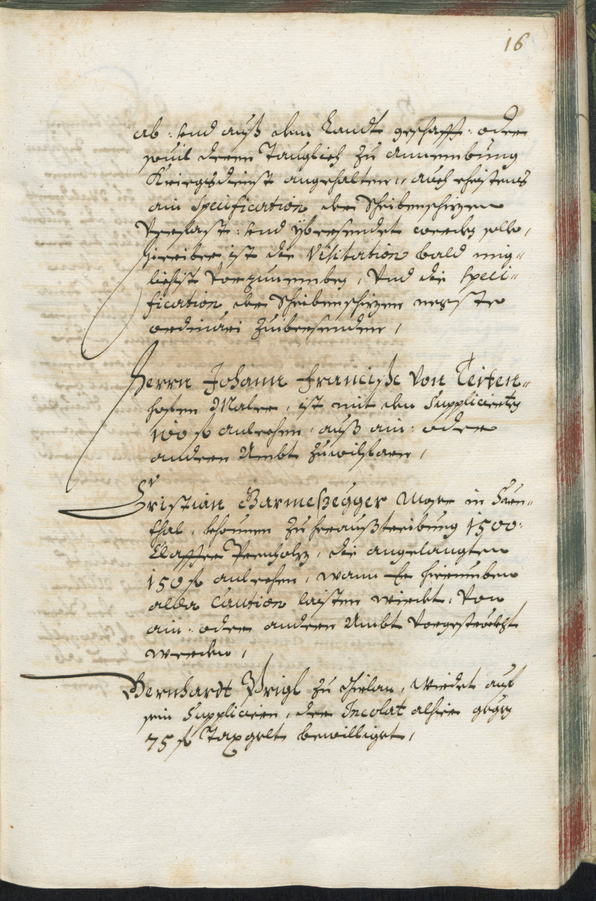 16
ab: und auß dem Landt geschafft: oder
souil deren Tauglich zu annembung
Kriegsdienst angehalten, auch ehistens
ain Specification der Scheibenschizen
verfasst: und yberesendet werden solle,
hieriber ist die Visitation bald mig-
lichist vorzunemben, Und die Speci-
fication der Scheibenschizen negster
ordinari zuibersenden,
Herrn Johann Francisc Von Teiten-
hofen Maler, ist mit den Supplicierten
100 f anlechen, auß ain: oder
andern Ambt zuwilfaren,
Cristian Garmeßegger Mayr in
thal, können zu heraußtreibung 1500:
Claffter Prennholz, die angelangten
150 f anlechen, wann Er hierumben
alda Caution laisten wierdt, Von
ain: oder andern Ambt vorgestreckht
werden,
Bernhardt Prigl zu, wierdet auf
sein Suppliciern, der Incolat alhie gegen
75 f Taxgelt bewilliget,